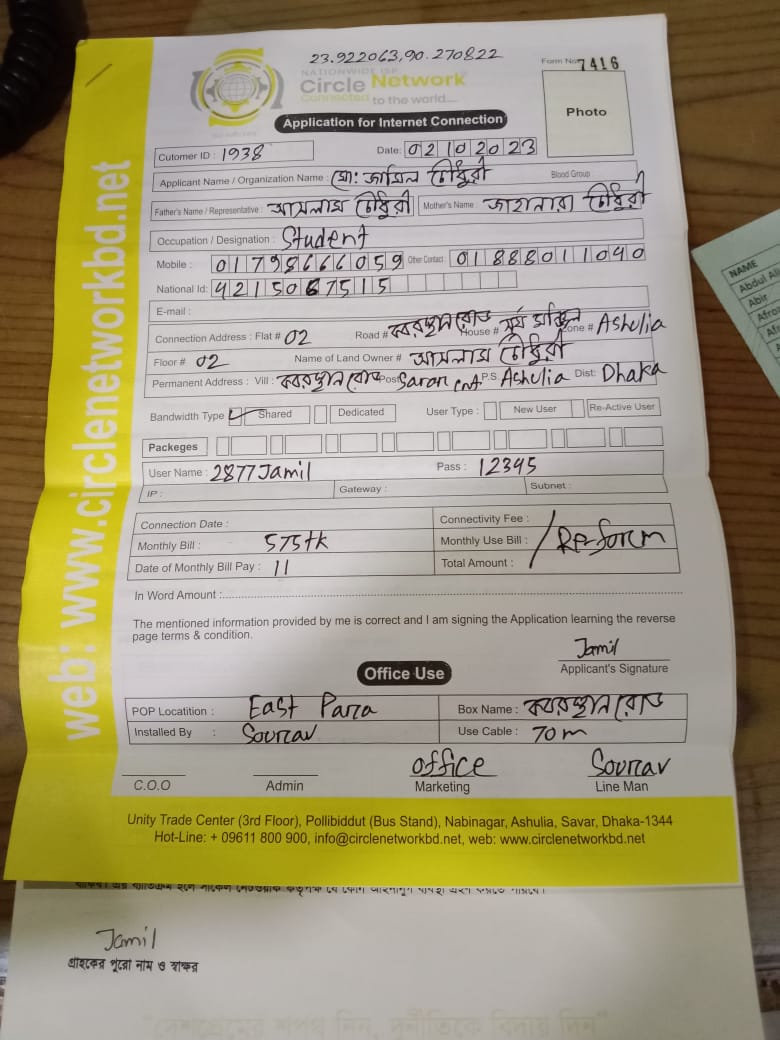 23.922063,90.270822
NATIONWIDE ISP
Circle Network
Connected to the world....
Form No: 7416
Photo
Application for Internet Connection
Cutomer ID : 1938 Date: 02102023
Applicant Name / Organization Name : মো: জামিল চৌধুরী Blood Group :
Father's Name / Representative : আসলাম চৌধুরী Mother's Name : জাহানারা চৌধুরী
Occupation / Designation : Student
Mobile : 01798666059 Other Contact : 01888011040
National Id: 4215067515
E-mail :
Connection Address : Flat # 02 Road # কবরস্থান রোড House # সূর্য মঞ্জিল Zone # Ashulia
Floor # 02 Name of Land Owner # আসলাম চৌধুরী
Permanent Address : Vill : কবরস্থান রোড Post Savar P.S Ashulia Dist: Dhaka
Bandwidth Type Shared Dedicated User Type : New User Re-Active User
Packeges
User Name : 2877Jamil Pass : 12345
IP : Gateway : Subnet :
Connection Date : Connectivity Fee :
Monthly Bill : 575tk Monthly Use Bill : Re-form
Date of Monthly Bill Pay : 11 Total Amount :
In Word Amount :
The mentioned information provided by me is correct and I am signing the Application learning the reverse
page terms & condition.
Jamil
Applicant's Signature
Office Use
POP Locatition : East Para Box Name : কবরস্থান রোড
Installed By : Sourav Use Cable : 70m
office Sourav
C.O.O Admin Marketing Line Man
Unity Trade Center (3rd Floor), Pollibiddut (Bus Stand), Nabinagar, Ashulia, Savar, Dhaka-1344
Hot-Line: + 09611 800 900, info@circlenetworkbd.net, web: www.circlenetworkbd.net
web: www.circlenetworkbd.net
Jamil
গ্রাহকের পুরো নাম ও স্বাক্ষর
"দেশপ্রেমের শপথ নিন, দুর্নীতিকে বিদায় দিন"
NAME
Abdul
Abir